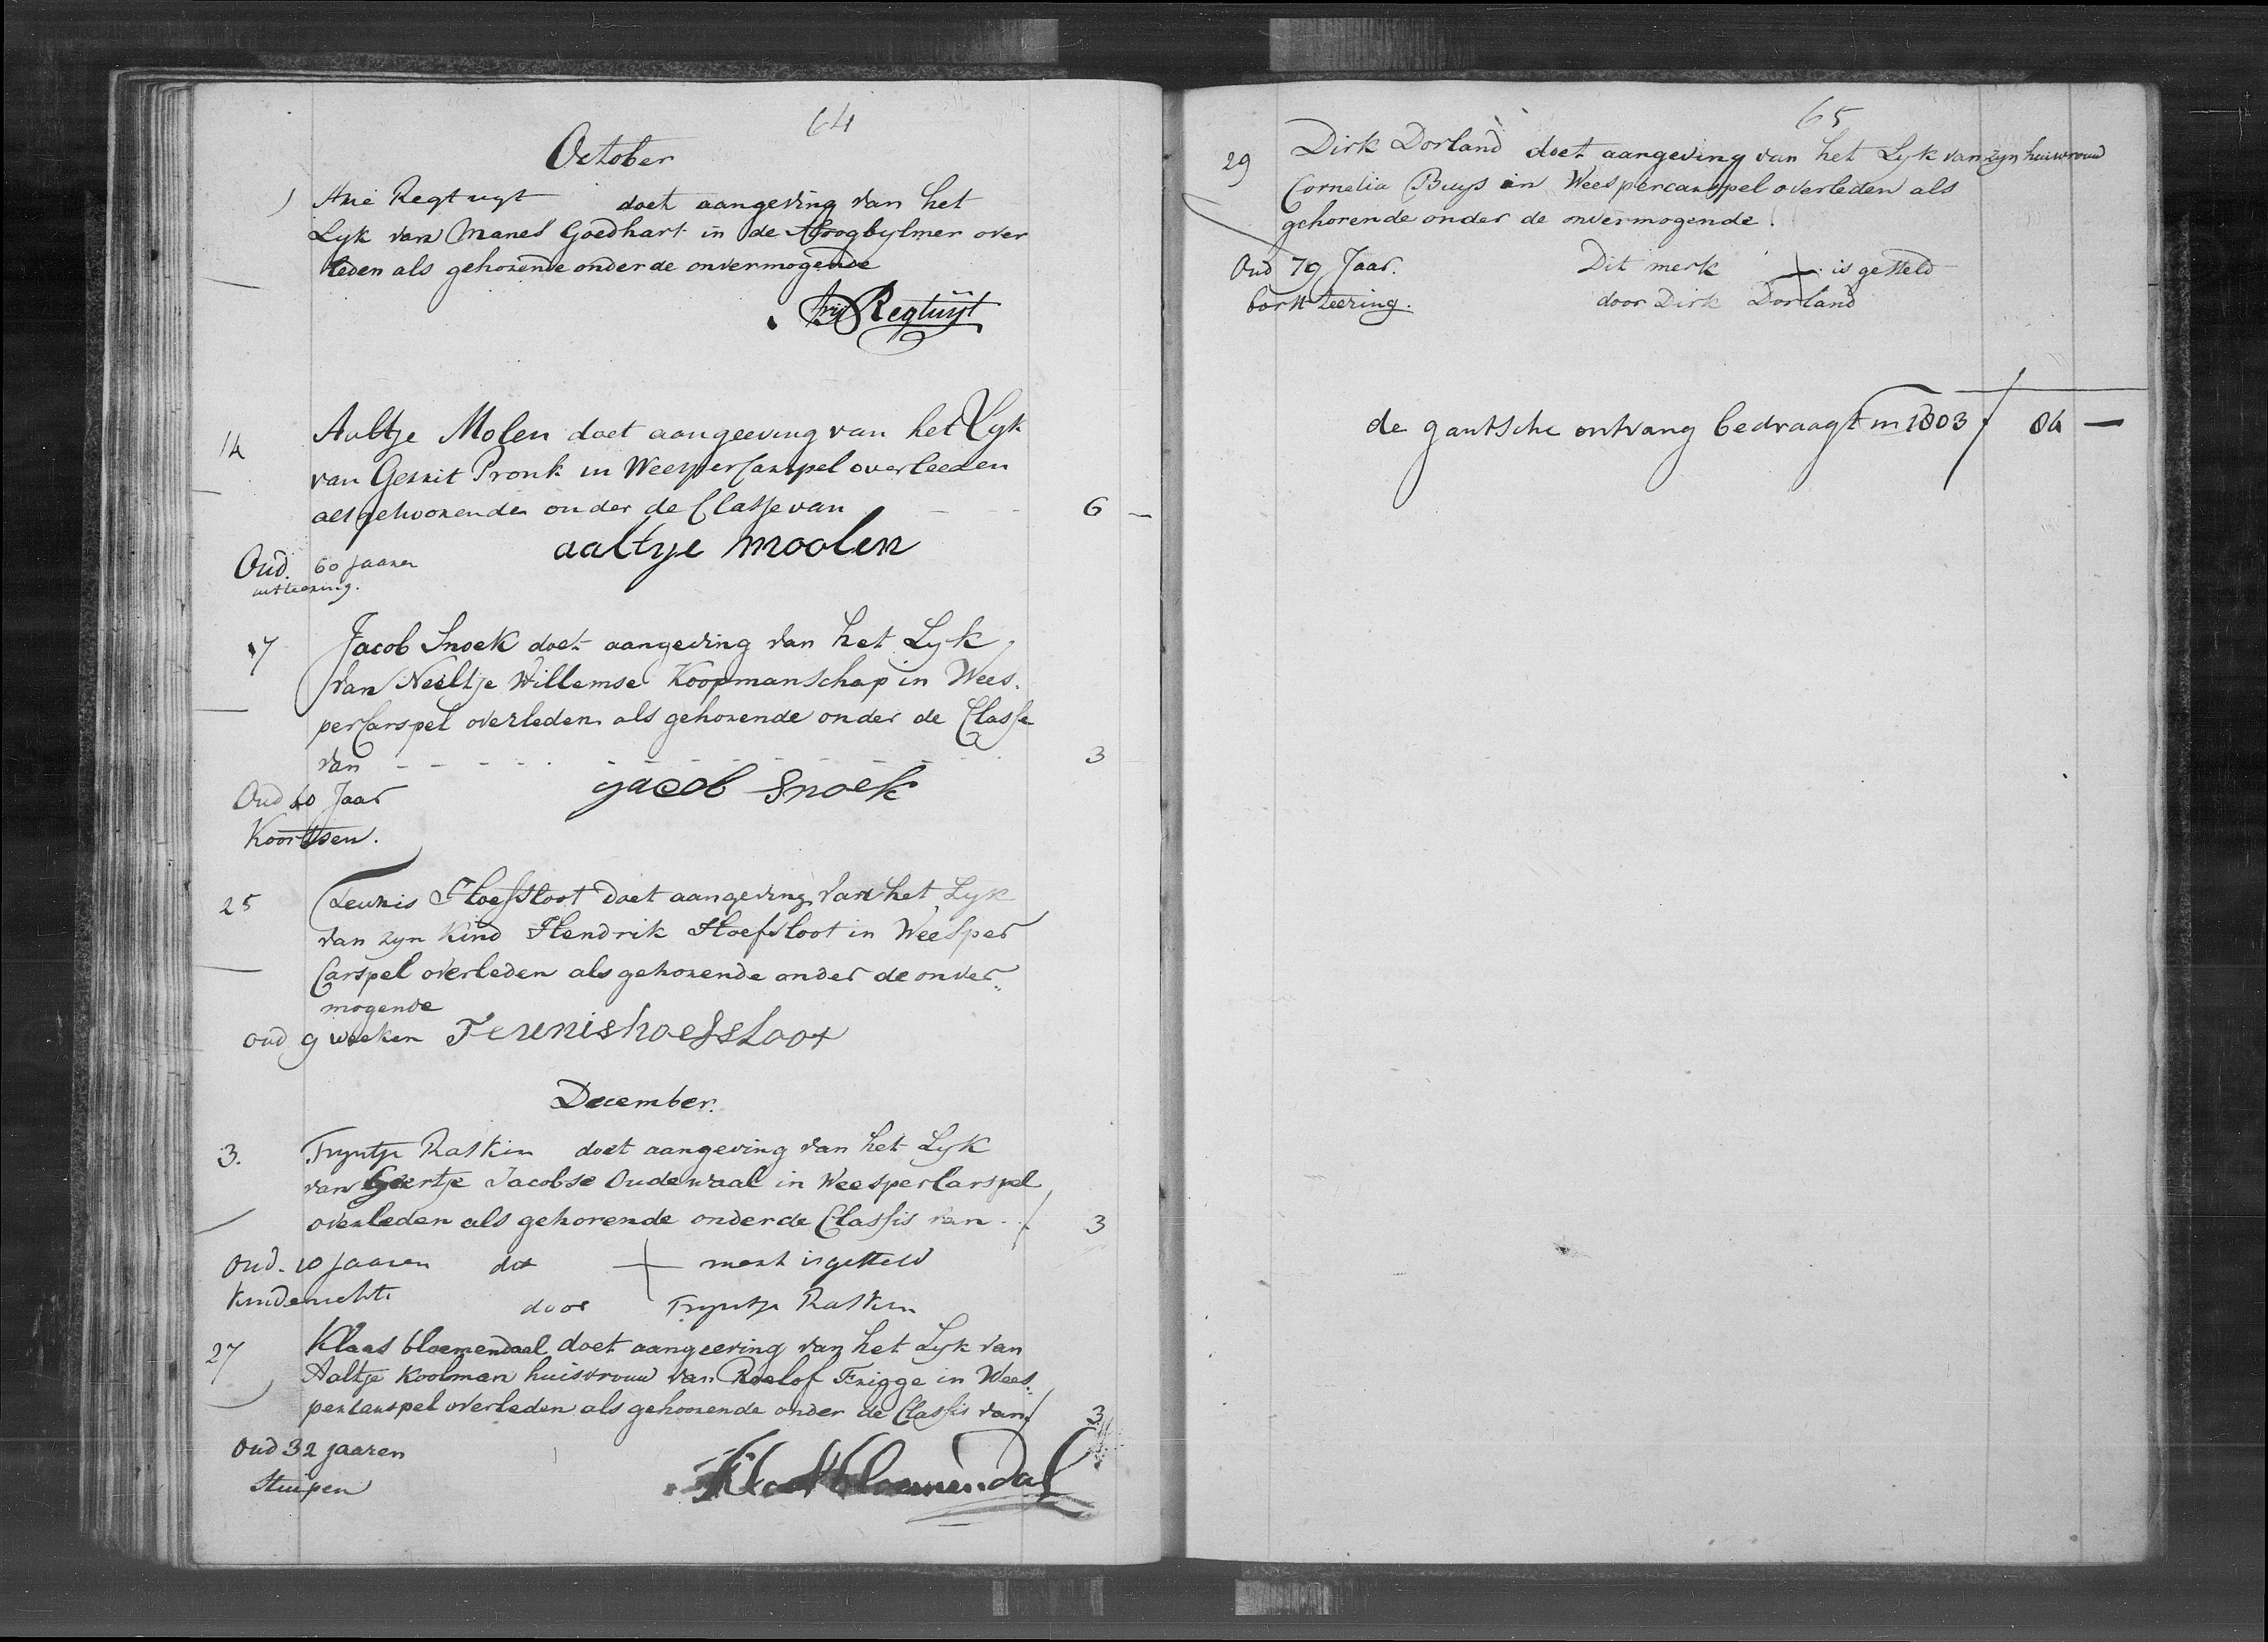 64
October
1 Arie Regtuyt doet aangeving van het
Lyk van Manes Goedhart in de Hoogbylmer over
leden als gehorende onder de onvermogende
Arij Regtuijt
14 Aaltje Molen doet aangeeving van het Lyk
van Gerrit Pronk in WeesperCarspel overleeden
als gehoorende onder de Classe van - - 6 -
aaltye moolen
Oud. 60 jaaren
uitteering.
17 Jacob Snoek doet aangeving van het Lyk
van Neeltje Willemse Koopmanschap in Wees-
perCarspel overleden als gehorende onder de Classe
van - - - - - - - - - - 3
jacob Snoek
Oud 60 Jaar
Koortsen.
25 Teunis Hoefsloot doet aangeving van het Lyk
van zyn Kind Hendrik Hoefsloot in Weesper
Carspel overleden als gehorende onder de onver„
mogende
oud 9 weeken Teunis hoefsloot
December.
3. Tryntje Raskin doet aangeving van het Lyk
van Geertje Jacobse Oudewaal in WeesperCarspel
overleden als gehorende onder de Classis van - f 3
Oud. 10 jaaren dit + merk is gesteld
door Tryntje Raskin
27 Klaas bloemendaal doet aangeeving van het Lyk van
Aaltje Koolman huisvrouw van Roelof Frigge in Wees-
percarspel overleden als gehoorende onder de Classis van f 3
Oud 32 jaaren
Stuipen
Klaas bloemendal
65
29 Dirk Dorland doet aangeving van het Lyk van zyn huisvrouw
Cornelia Buys in Weespercarspel overleden als
gehorende onder de onvermogende.
Oud 79 Jaar. Dit merk + is gesteld
borst teering. door Dirk Dorland
de gantsche ontvang bedraagt in 1803 f 84 -